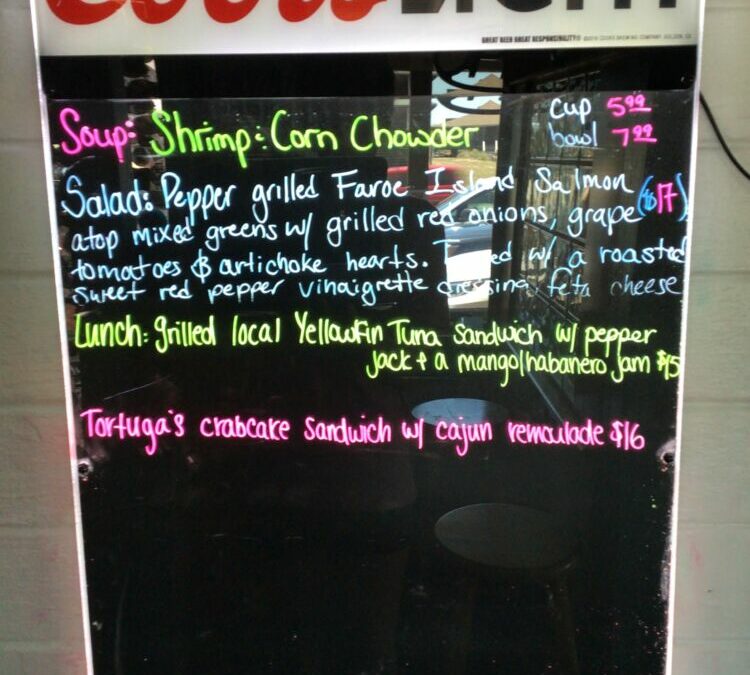 Coors LIGHT
GREAT BEER GREAT RESPONSIBILITY® ©2010 COORS BREWING COMPANY, GOLDEN, CO
Soup: Shrimp : Corn Chowder
cup 5.99
bowl 7.99
Salad: Pepper grilled Faroe Island Salmon
atop mixed greens w/ grilled red onions, grape
tomatoes & artichoke hearts. w/ a roasted
sweet red pepper vinaigrette dressing, feta cheese
Lunch: grilled local Yellowfin Tuna Sandwich w/ pepper
jack + a mango/habanero jam $15
Tortuga's crabcake Sandwich w/ cajun remoulade $16